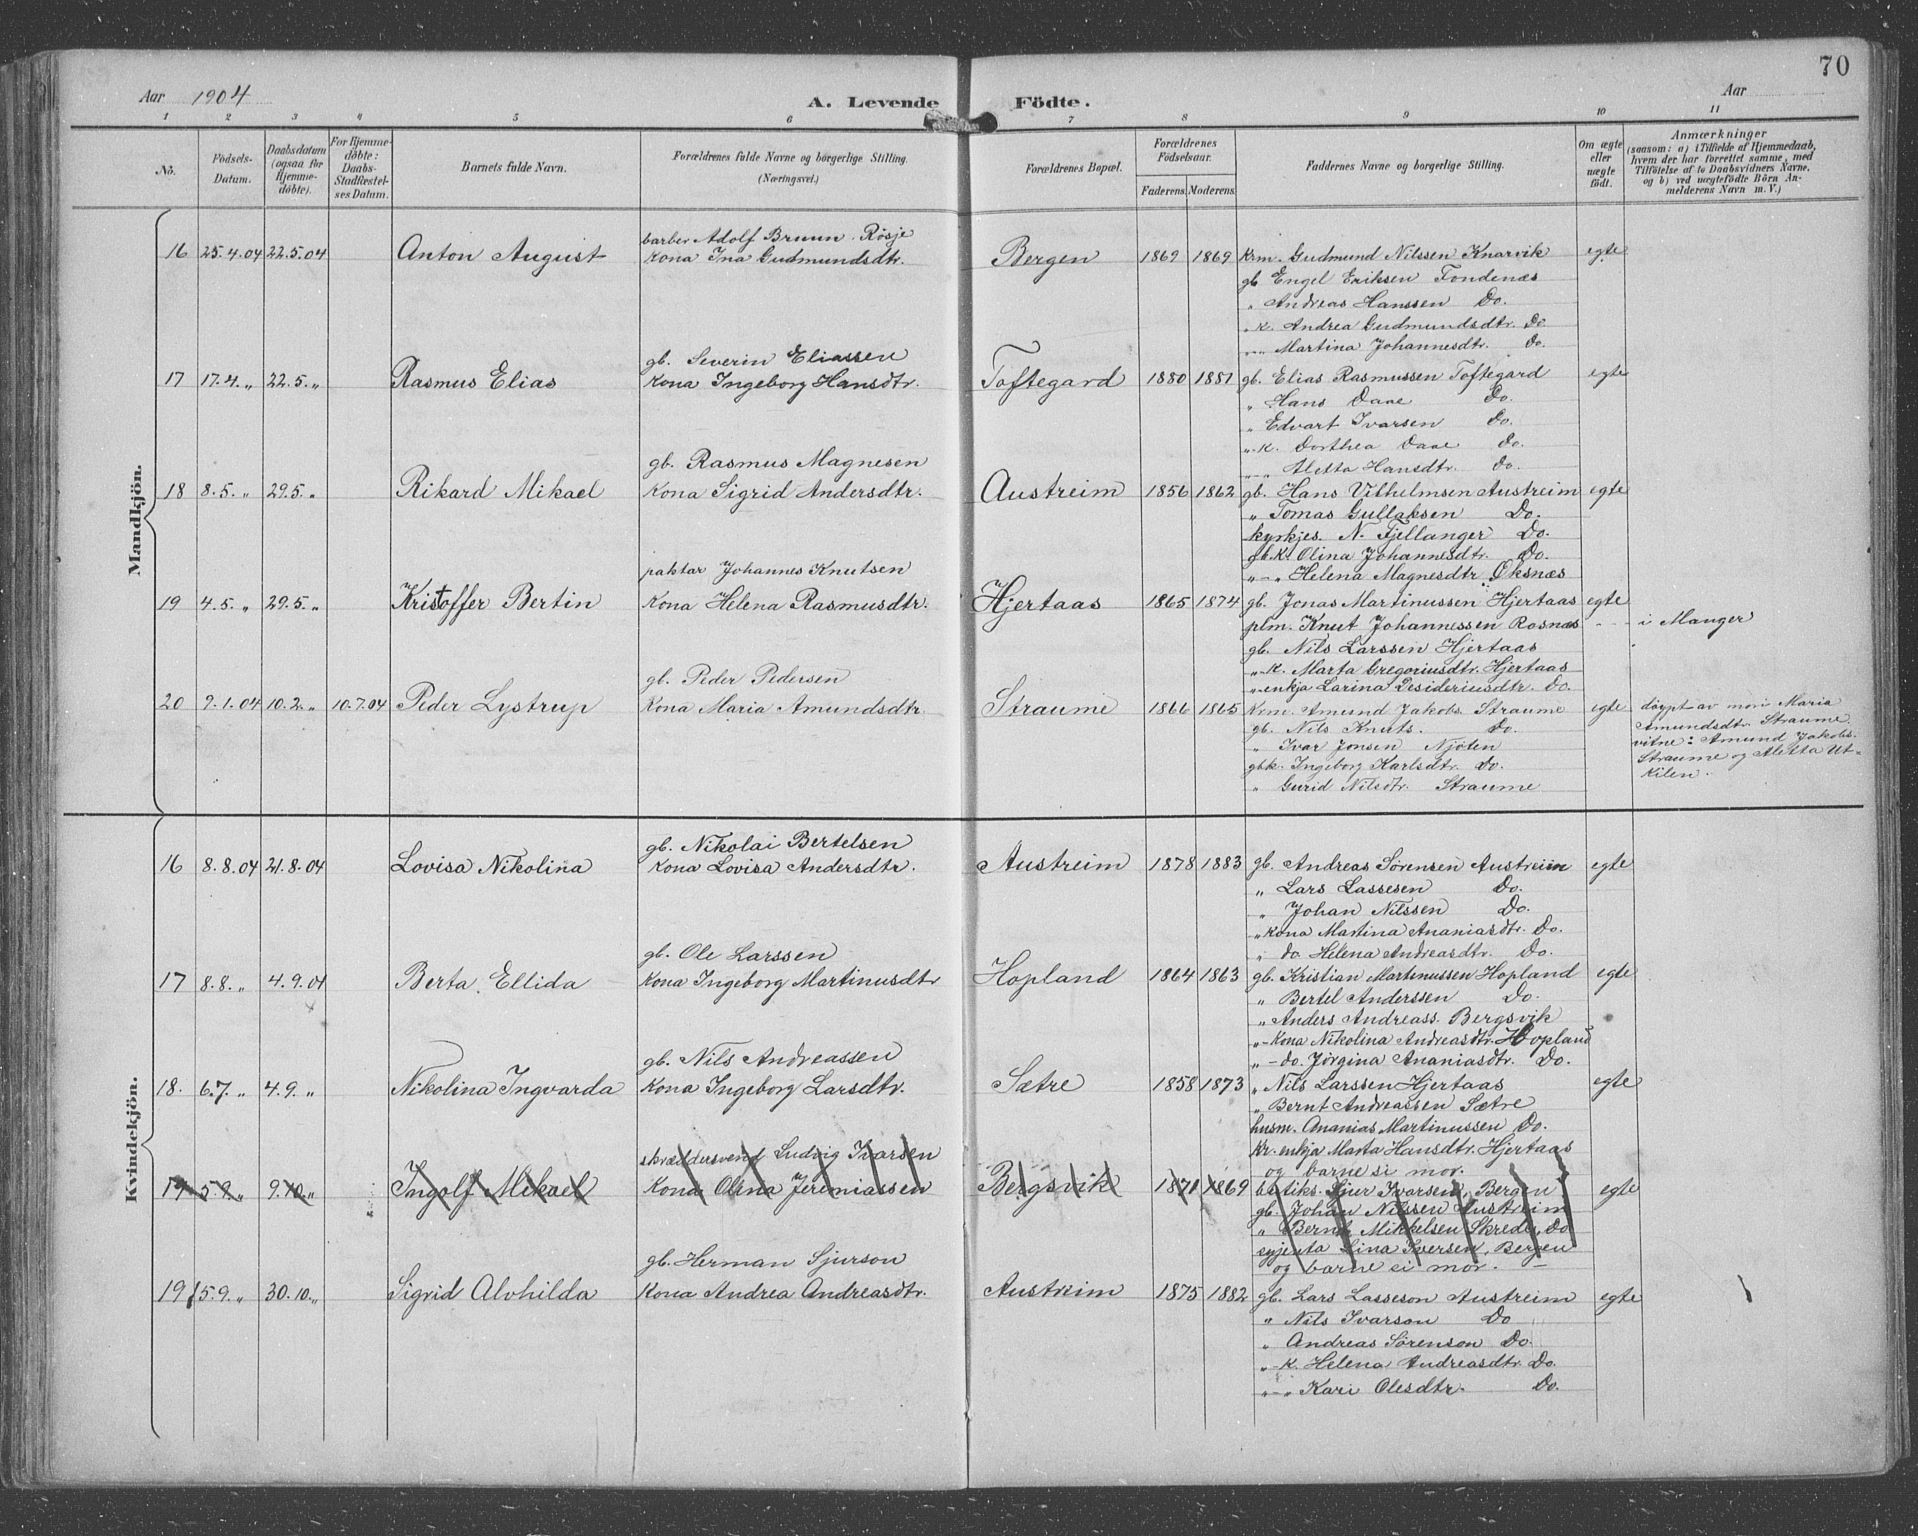 70
Aar 1904
A. Levende Födte.
Aar
1 2 3 4 5 6 7 8 9 10 11
No.
Födsels-Datum.
Daabsdatum (ogsaa for Hjemme-döbte).
For Hjemme-döbte: Daabs-Stadfæstel-ses Datum.
Barnets fulde Navn.
Forældrenes fulde Navne og borgerlige Stilling. (Næringsvei.)
Forældrenes Bopæl.
Forældrenes Födselsaar.
Faderens. Moderens.
Faddernes Navne og borgerlige Stilling.
Om ægte eller uægte födt.
Anmærkninger
(saasom: a) i Tilfælde af Hjemmedaab,
hvem der har forrettet samme, med
Tilföielse af to Daabsvidners Navne,
og b) ved uægtefödte Börn An-
melderens Navn m. V.)
Mandkjön.
barber Adolf Bruun Røsje
16 25.4.04 22.5.04 Anton August Kona Ina Gudmundsdtr. Bergen 1869 1869 Krm. Gudmund Nilssen Knarvik egte
gb Engel Eriksen Fondenæs
" Andreas Hanssen Do.
" K. Andrea Gudmundsdtr. Do
" " Martina Johannesdtr. Do.
gb. Severin Eliassen
17 17.4. " 22.5. " Rasmus Elias Kona Ingeborg Hansdtr. Toftegard 1880 1881 gb. Elias Rasmussen Toftegard egte
" Hans Daae Do.
" Edvart Ivarsen Do.
" K. Dorthea Daae Do.
" " Aletta Hansdtr. Do.
gb. Rasmus Magnesen
18 8.5. " 29.5. " Rikard Mikael Kona Sigrid Andersdtr. Austreim 1856 1862 gb. Hans Vilhelmsen Austreim egte
" Tomas Gullaksen Do.
kyrkjes. N. Fjellanger Do.
gb.K. Olina Johannesdtr. Do.
" - " Helena Magnesdtr. Øksnæs
paktar Johannes Knutsen
19 4.5. " 29.5. " Kristoffer Bertin Kona Helena Rasmusdtr. Hjertaas 1865 1874 gb. Jonas Martinussen Hjertaas egte
plm. Knut Johannessen Rosnæs - - - i Manger
gb. Nils Larssen Hjertaas
" K. Marta Gregoriusdtr. Hjertaas
" enkja Larina Desideriusdtr. Do.
gb. Peder Pedersen
20 9.1.04 10.2. " 10.7.04 Peder Lystrup Kona Maria Amundsdtr. Straume 1866 1865 Krm. Amund Jakobs. Straume egte
gb. Nils Knuts. Do.
" Ivar Jonsen Njøten
gbk. Ingeborg Karlsdtr. Do.
" Gurid Nilsdtr. Straume
døypt av mori Maria
Amundsdtr. Straume.
vitne: Amund Jakobs.
Straume og Aletta Ut-
Kilen.
Kvindekjön.
gb. Nikolai Bertelsen
16 8.8.04 21.8.04 Lovisa Nikolina Kona Lovisa Andersdtr. Austreim 1878 1883 gb. Andreas Sørensen Austreim egte
" Lars Lassesen Do.
" Johan Nilssen Do.
" Kona Martina Ananiasdtr. Do.
" do. Helena Andreasdtr. Do.
gb. Ole Larssen
17 8.8. " 4.9.04 Berta Ellida Kona Ingeborg Martinusdtr Hopland 1864 1863 gb. Kristian Martinussen Hopland egte
" Bertel Anderssen Do.
" Anders Andreass. Bergsvik
" - Kona Nikolina Andreasdtr. Hopland
" - do. Jørgina Ananiasdtr. Do.
gb. Nils Andreassen
18. 6.7. " 4.9. " Nikolina Ingvarda Kona Ingeborg Larsdtr. Sætre 1858 1873 " Nils Larssen Hjertaas egte
" Bernt Andreassen Sætre
husm. Ananias Martinussen Do.
Kr. enkja Marta Hansdtr. Hjertaas
og barne si mor.
skræddersvend Ludvig Ivarsen
19 5.9. " 9.10. " Ingolf Mikael Kona Olina Jeremiassen Bergsvik 1871 1869 Sjur Ivarsen, Bergen egte
gb. Johan Nilssen Austreim
" Bernt Mikkelsen Skrede, Do
syjenta Lina Iversen, Bergen
og barne si mor. -
gb. Herman Sjurson
19 5.9. " 30.10. " Sigrid Alvhilda Kona Andrea Andreasdtr. Austreim 1875 1882 gb. Lars Lasseson Austreim egte
" Nils Ivarson Do
" Andreas Sørenson Do.
" - K. Helena Andreasdtr. Do.
" - " Kari Olesdtr. Do.